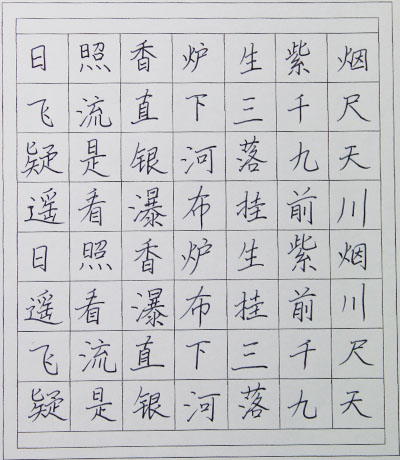 日照香炉生紫烟
飞流直下三千尺
疑是银河落九天
遥看瀑布挂前川
日照香炉生紫烟
遥看瀑布挂前川
飞流直下三千尺
疑是银河落九天